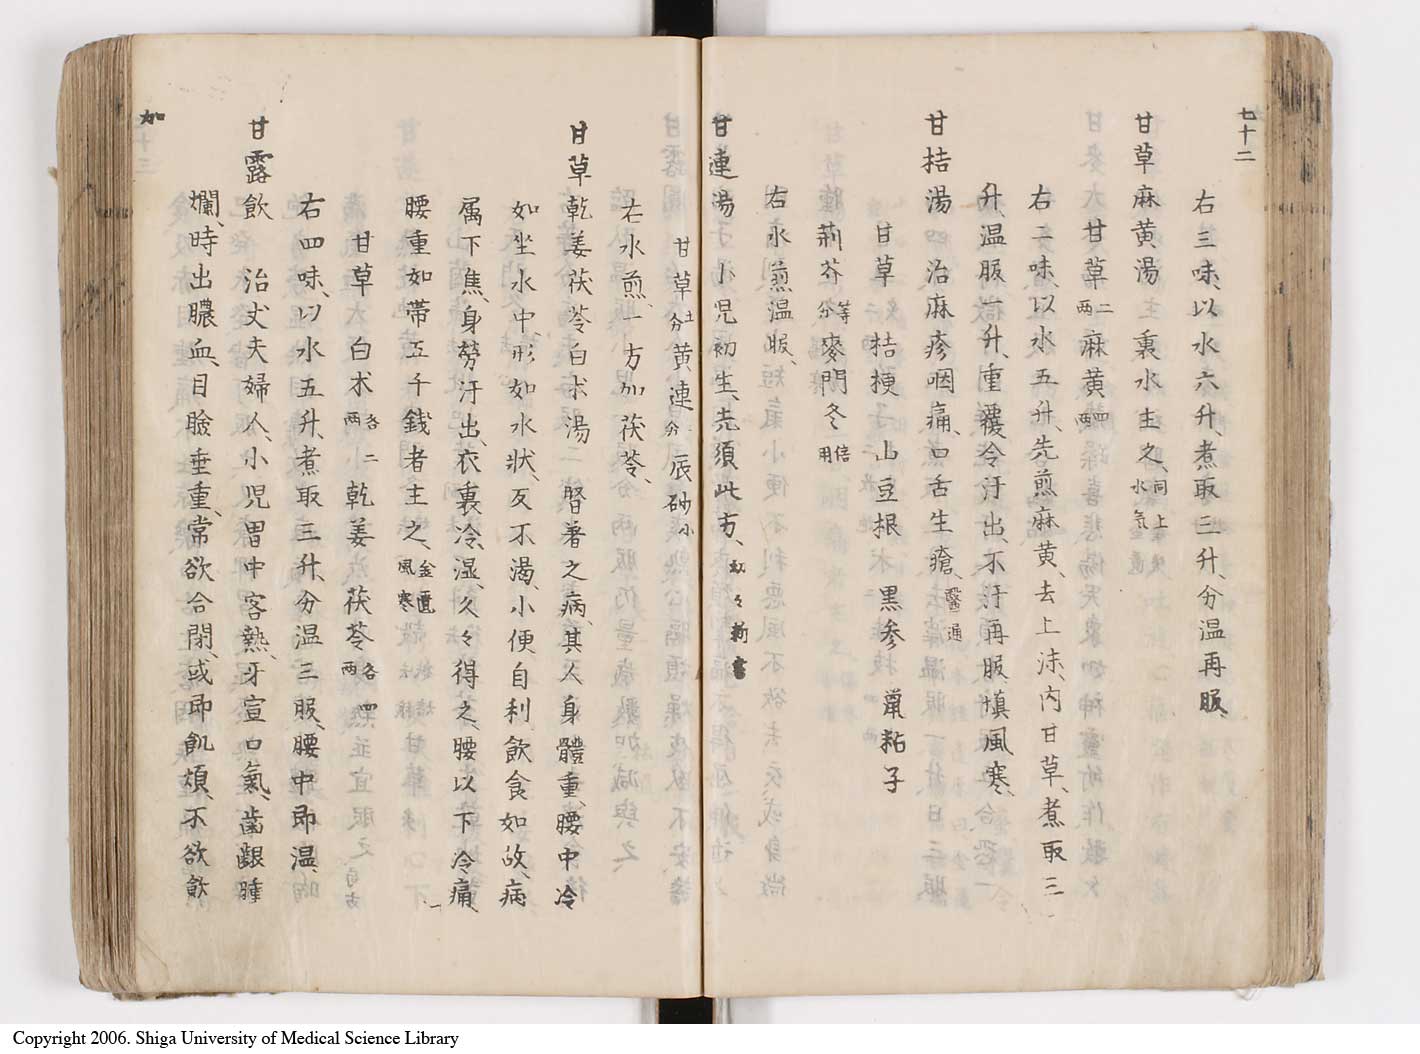 七十二
右三味、以水六升、煮取三升、分温再服、
甘草麻黄湯 主裏水主之、同上 水氣
甘草二両 麻黄四両
右二味、以水五升、先煎麻黄、去上沫、内甘草、煮取三
升、温服一升、重覆令汗出不汗再服慎風寒、
甘桔湯 治麻疹咽痛、口舌生瘡、醫通
甘草 桔梗 山豆根 黒参 鼠粘子
荊芥等分 麥門冬一倍用
右水煎温服、
甘連湯 小児初生、先須此方、
甘草 黄連 辰砂小
右水煎、一方加茯苓、
甘草乾姜茯苓白朮湯 腎著之病、其人身體重、腰中冷
如坐水中、形如水状、反不渇、小便自利飲食如故、病
属下焦、身勞汗出、衣裏冷、湿、久々得之、腰以下冷痛、
腰重如帯五千銭者主之、金匱 風寒
甘草 白朮各二両 乾姜 茯苓各四両
右四味、以水五升、煮取三升、分温三服、腰中即温、
甘露飲 治丈夫婦人、小児胃中客熱、牙宣口氣、歯齦腫
爛、時出膿血、目瞼垂重、常欲合閉、或即飢煩、不欲飲
加
Copyright 2006. Shiga University of Medical Science Library